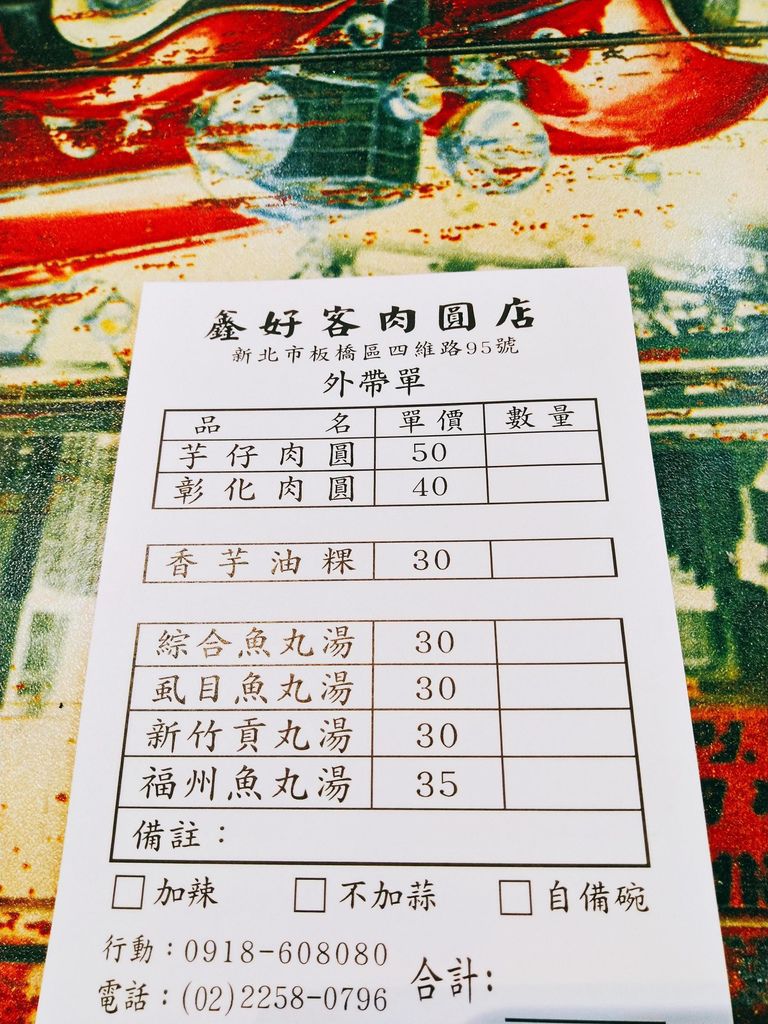 鑫好客肉圓店
新北市板橋區四維路95號
外帶單
品名 單價 數量
芋仔肉圓 50
彰化肉圓 40
香芋油粿 30
綜合魚丸湯 30
虱目魚丸湯 30
新竹貢丸湯 30
福州魚丸湯 35
備註：
□加辣 □不加蒜 □自備碗
行動：0918-608080
電話：(02)2258-0796 合計: